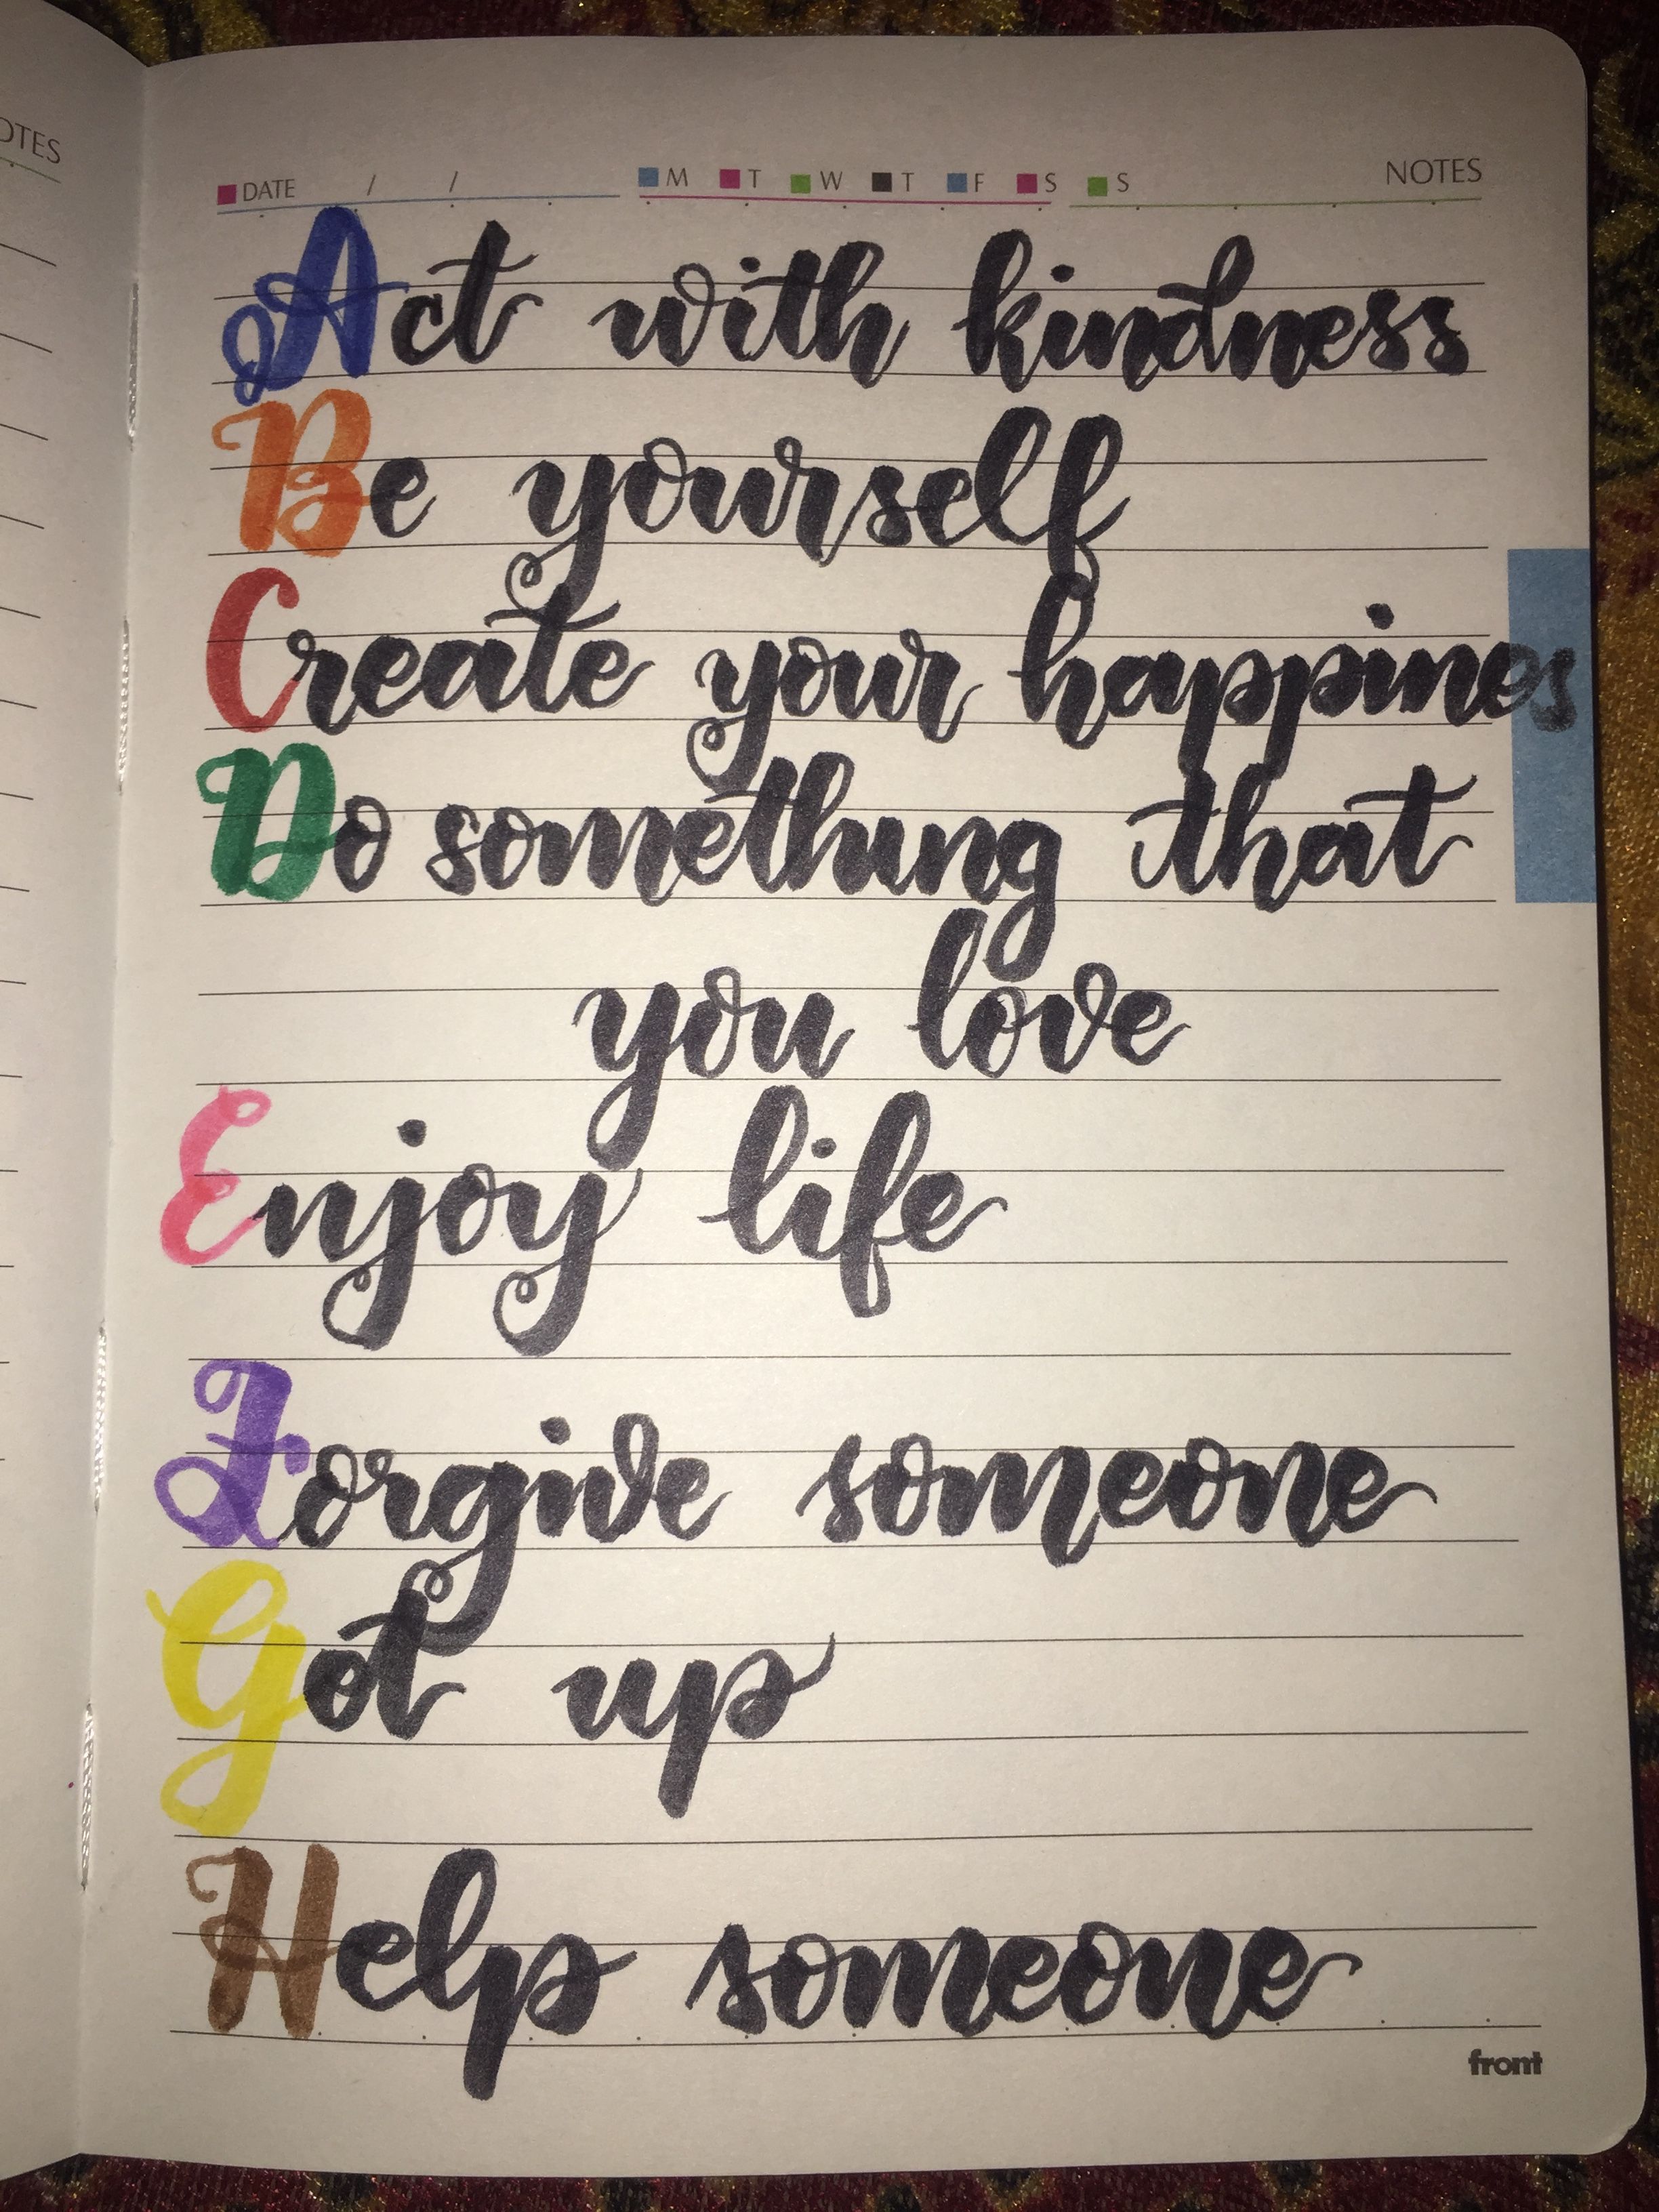 OTES
DATE / / M T W T F S S NOTES
Act with kindness
Be yourself
Create your happines
Do something that
you love
Enjoy life
Forgive someone
Get up
Help someone
front